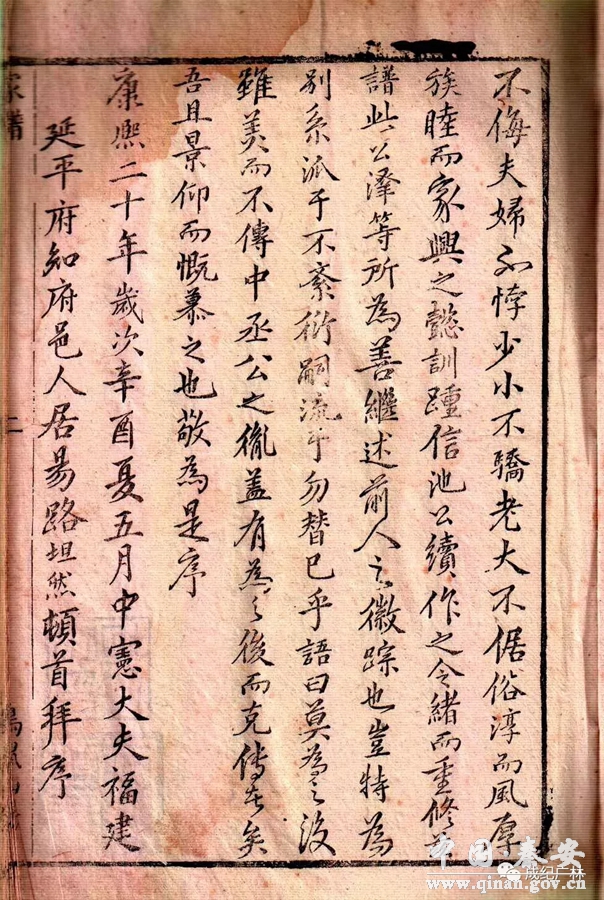 不侮夫婦不悖少小不驕老大不倨俗淳而風厚
族睦而家興之懿訓踵信池公續作之令緒而重修
譜此公澤等所為善繼述前人之徽踪也豈特為
別系派于不紊衍嗣流于勿替已乎語曰莫為之後
雖美而不傳中丞公之胤盖有為之後而克傳者矣
吾且景仰而慨慕之也敬為是序
康熙二十年歲次辛酉夏五月中憲大夫福建
延平府知府邑人居易路坦然頓首拜序
家譜
二
中国·秦安
成纪广林
www.qinan.gov.cn